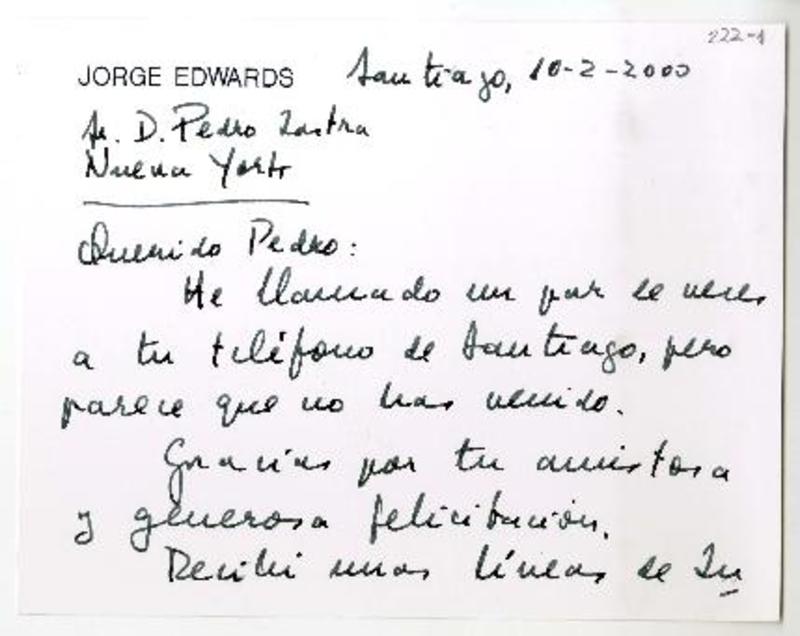 222-1
JORGE EDWARDS Santiago, 10-2-2000
Sr. D. Pedro Lastra
Nueva York
Querido Pedro:
He llamado un par de veces
a tu teléfono de Santiago, pero
parece que no has venido.
Gracias por tu amistosa
y generosa felicitación.
Recibí unas líneas de